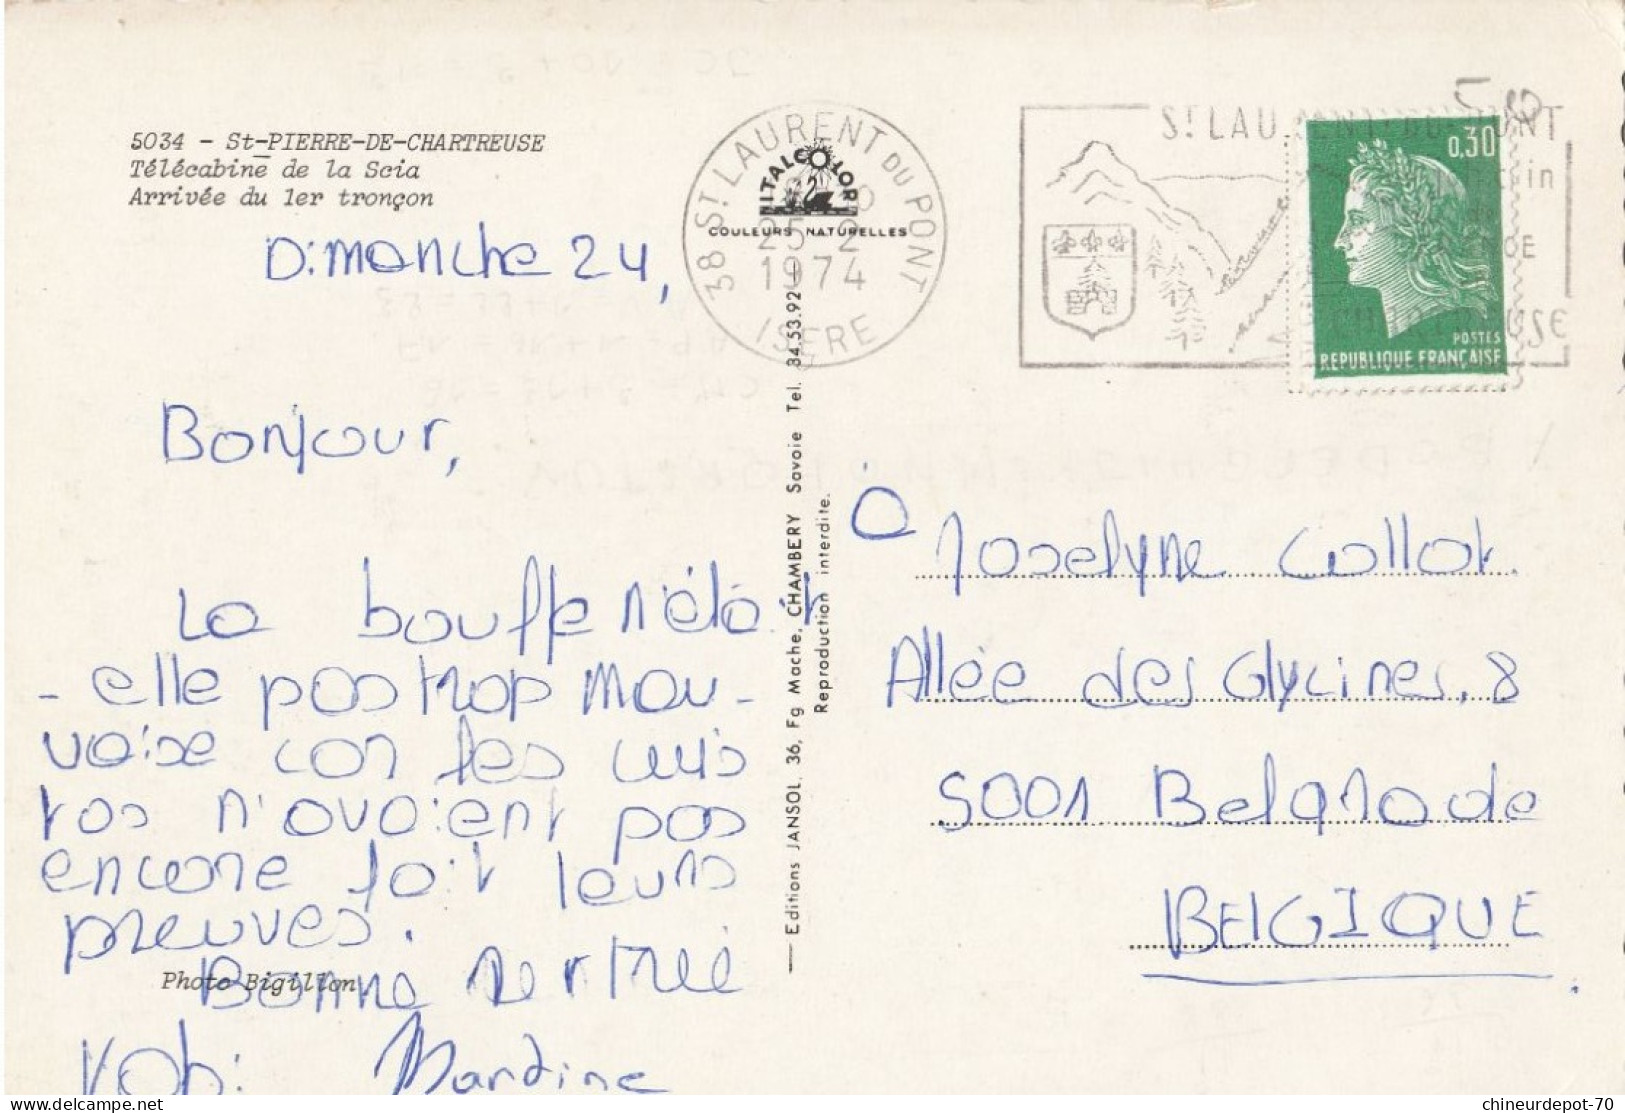 5034 - St-PIERRE-DE-CHARTREUSE
Télécabine de la Scia
Arrivée du 1er tronçon
Dimanche 24,
Bonjour,
La bouffe n'était
-elle pas trop mau-
vaise car les cuis
tos n'avaient pas
encore fait leurs
preuves.
Bonne rentrée
Martine
Photo Bigillon
38 ST LAURENT DU PONT
25-2
1974
ISERE
ITALCOLOR
COULEURS NATURELLES
Editions JANSOL. 36, Fg Mache, CHAMBERY Savoie Tel. 34.53.92
Reproduction interdite.
ST LAURENT DU PONT
CHARTREUSE
0,30
POSTES
REPUBLIQUE FRANÇAISE
Joselyne Collot.
Allée des Glycines, 8
5001 Belgrade
BELGIQUE.
chineurdepot-70